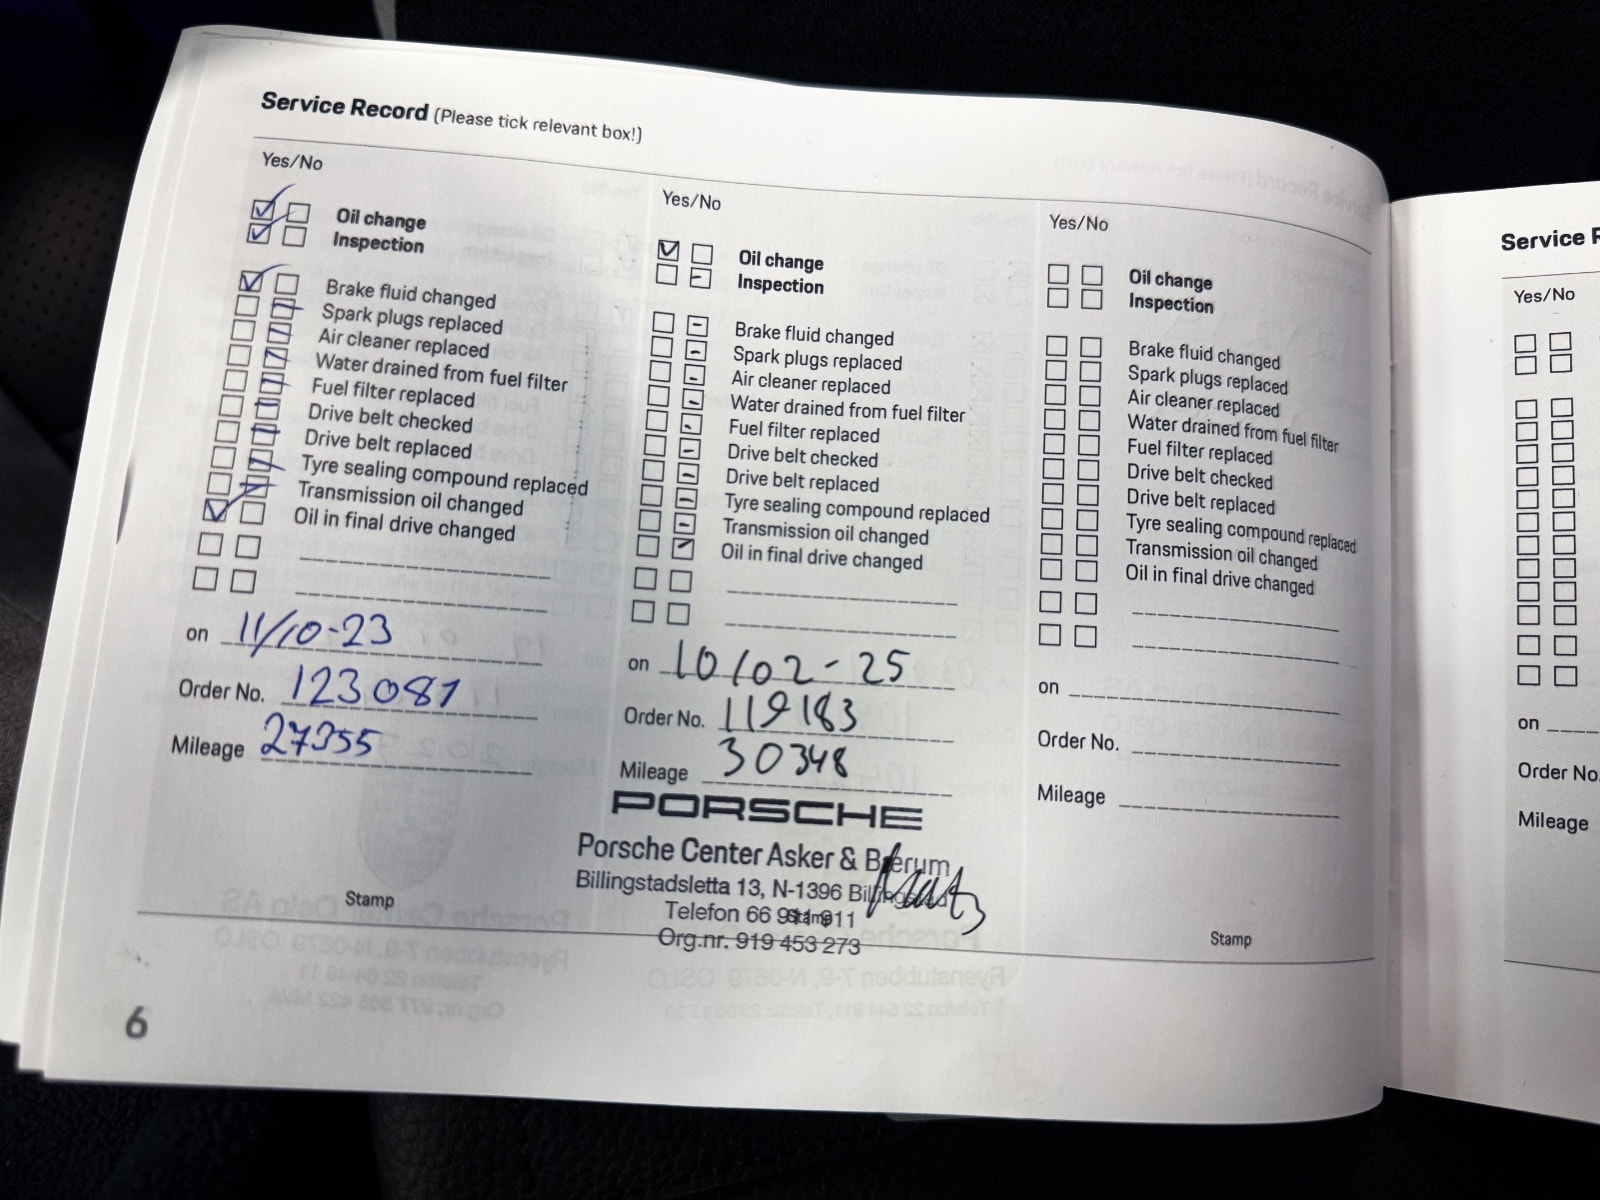 Service Record (Please tick relevant box!)
Yes/No
Oil change
Inspection
Brake fluid changed
Spark plugs replaced
Air cleaner replaced
Water drained from fuel filter
Fuel filter replaced
Drive belt checked
Drive belt replaced
Tyre sealing compound replaced
Transmission oil changed
Oil in final drive changed
on 11/10-23
Order No. 123081
Mileage 27355
Stamp
6
Yes/No
Oil change
Inspection
Brake fluid changed
Spark plugs replaced
Air cleaner replaced
Water drained from fuel filter
Fuel filter replaced
Drive belt checked
Drive belt replaced
Tyre sealing compound replaced
Transmission oil changed
Oil in final drive changed
on 10/02-25
Order No. 119183
Mileage 30348
PORSCHE
Porsche Center Asker & Bærum
Billingstadsletta 13, N-1396 Billingstad
Telefon 66 911 911
Stamp
Org.nr. 919 453 273
Yes/No
Oil change
Inspection
Brake fluid changed
Spark plugs replaced
Air cleaner replaced
Water drained from fuel filter
Fuel filter replaced
Drive belt checked
Drive belt replaced
Tyre sealing compound replaced
Transmission oil changed
Oil in final drive changed
on
Order No.
Mileage
Stamp
Service R
Yes/No
on
Order No.
Mileage